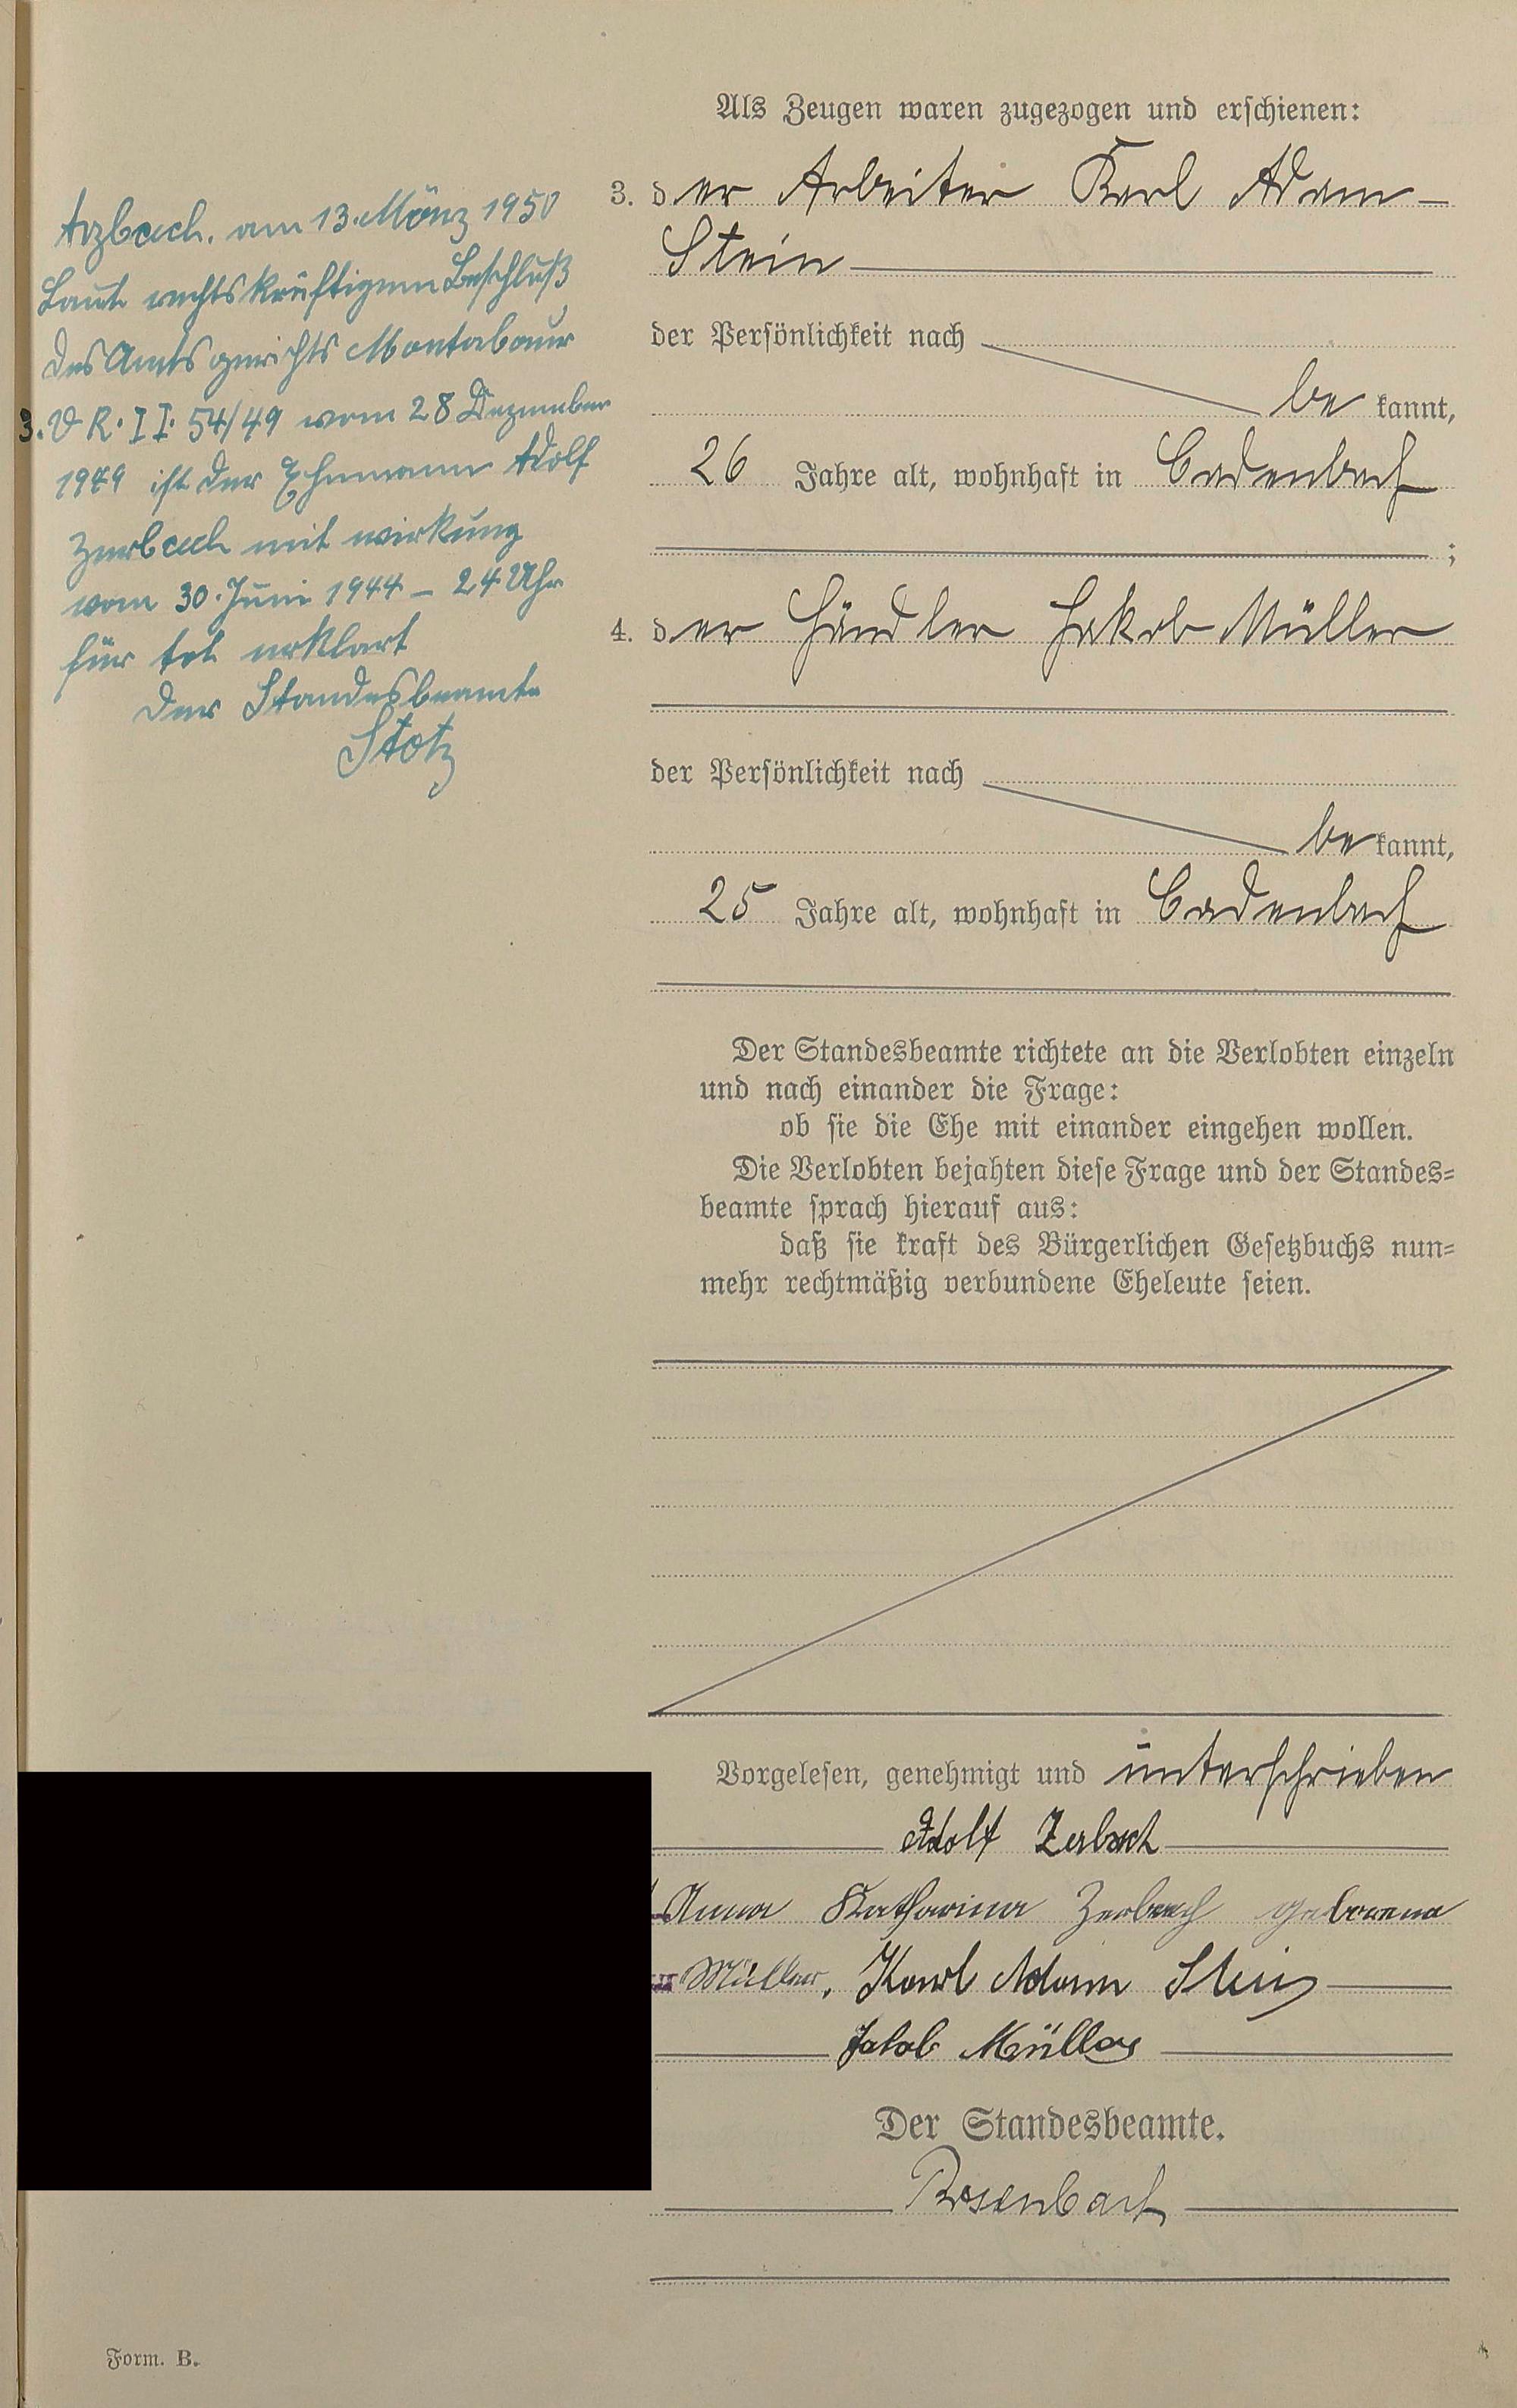 Als Zeugen waren zugezogen und erschienen:
3. der Arbeiter Karl Adam
Stein
der Persönlichkeit nach
be kannt,
26 Jahre alt, wohnhaft in Cadenbach
;
4. der Händler Jakob Müller
der Persönlichkeit nach
be kannt,
25 Jahre alt, wohnhaft in Cadenbach
Der Standesbeamte richtete an die Verlobten einzeln
und nach einander die Frage:
ob sie die Ehe mit einander eingehen wollen.
Die Verlobten bejahten diese Frage und der Standes=
beamte sprach hierauf aus:
daß sie kraft des Bürgerlichen Gesetzbuchs nun=
mehr rechtmäßig verbundene Eheleute seien.
Vorgelesen, genehmigt und unterschrieben
Adolf Zerbach
Anna Katharina Zerbach geborene
Müller, Karl Adam Stein
Jakob Müller
Der Standesbeamte.
Rosenbach
Arzbach, am 13. März 1950
Laut rechtskräftigem Beschluß
des Amtsgerichts Montabaur
3. V R. II 54/49 vom 28 Dezember
1949 ist der Ehemann Adolf
Zerbach mit wirkung
vom 30. Juni 1944 – 24 Uhr
für tot erklärt
Der Standesbeamte
Stotz
Form. B.